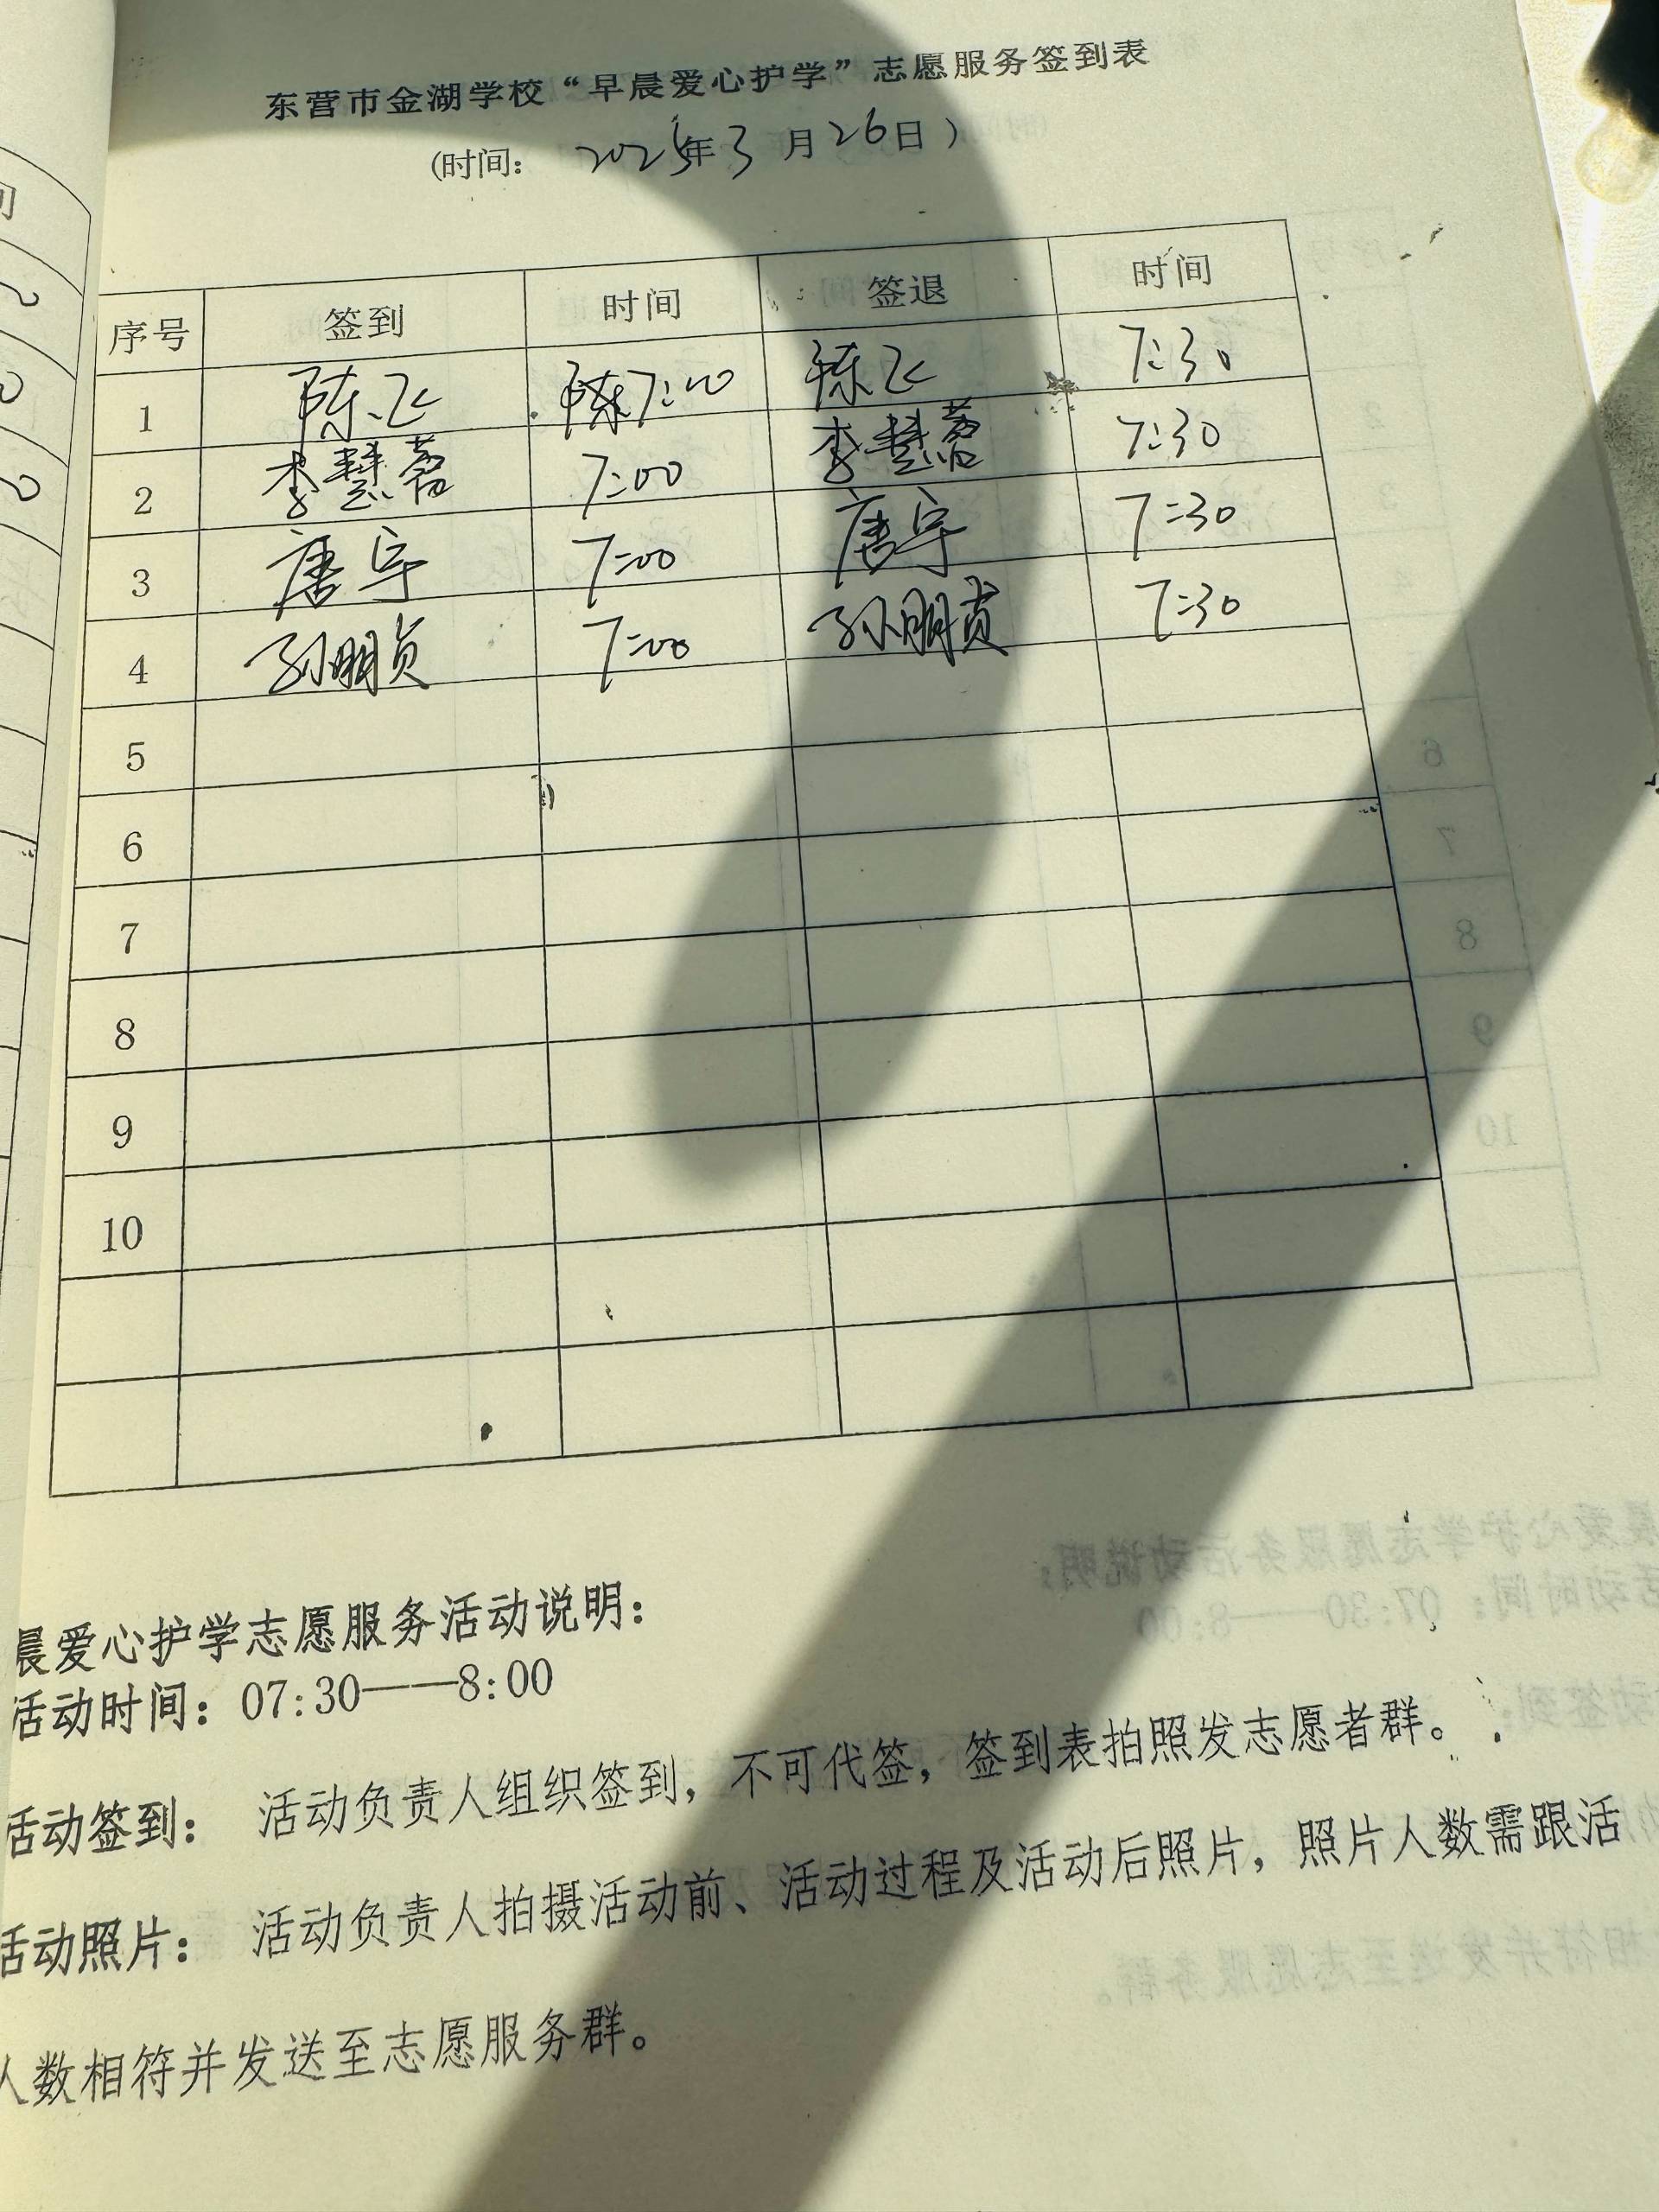 东营市金湖学校“早晨爱心护学”志愿服务签到表
(时间: 2025年3月26日)
序号 签到 时间 签退 时间
1 陈飞 陈7:00 陈飞 7:30
2 李慧蓉 7:00 李慧蓉 7:30
3 唐宇 7:00 唐宇 7:30
4 孙明贞 7:00 孙明贞 7:30
5
6
7
8
9
10
晨爱心护学志愿服务活动说明:
活动时间: 07:30——8:00
活动签到: 活动负责人组织签到, 不可代签, 签到表拍照发志愿者群。
活动照片: 活动负责人拍摄活动前、活动过程及活动后照片, 照片人数需跟活
人数相符并发送至志愿服务群。